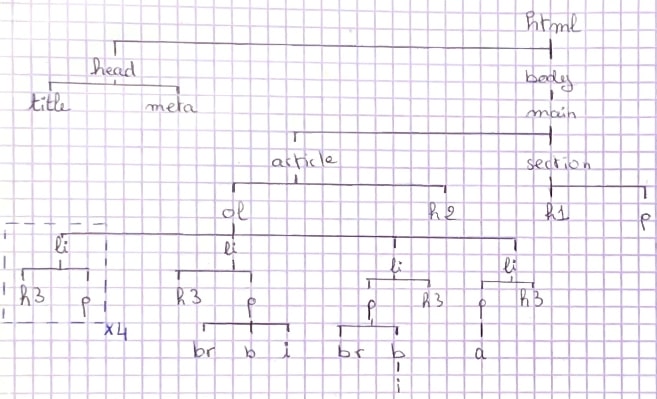 html
head
body
title meta
main
article section
ol h2 h1 p
li li li li
h3 p h3 p p h3 p h3
x4
br b i br b a
i